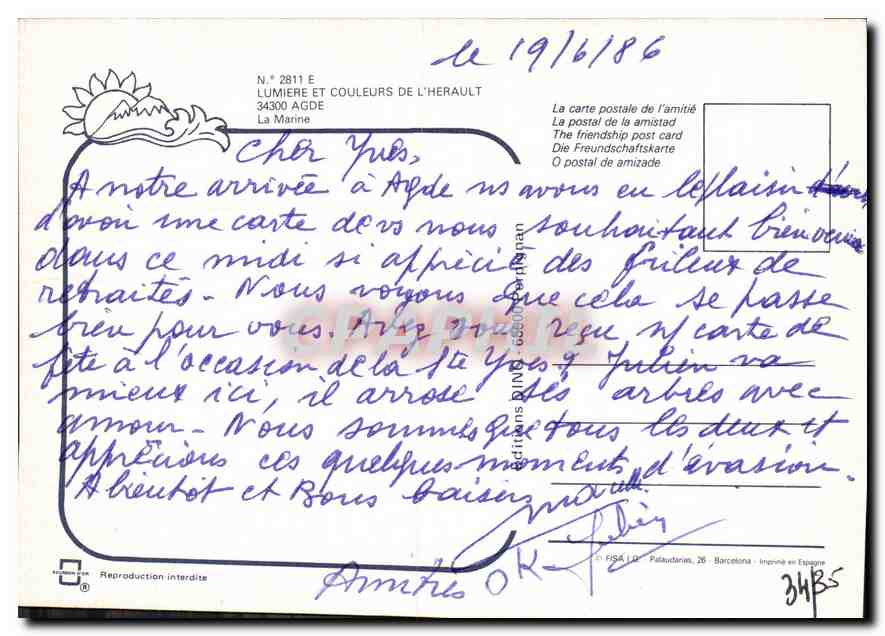 le 19/6/86
N.° 2811 E
LUMIERE ET COULEURS DE L'HERAULT
34300 AGDE
La Marine
La carte postale de l'amitié
La postal de la amistad
The friendship post card
Die Freundschaftskarte
O postal de amizade
Cher Yves,
A notre arrivée à Agde ns avons eu le plaisir
d'avoir une carte de vs nous souhaitant bienvenue
dans ce midi si apprécié des frileux de
retraités - Nous voyons que cela se passe
bien pour vous. Avez vous reçu n/ carte de
fête à l'occasion de la Ste Yves ? Julien va
mieux ici, il arrose ses arbres avec
amour - Nous sommes que tous les deux et
apprécions ces quelques moments d'évasion.
A bientôt et Bons baisers
Julien
Amitiés OK
éditions DINO - 66000 Perpignan
CPAPHIL
© FISA I.G. Palaudarias, 26 - Barcelona - Imprimé en Espagne
ECUSSON D'OR
® Reproduction interdite
34/35